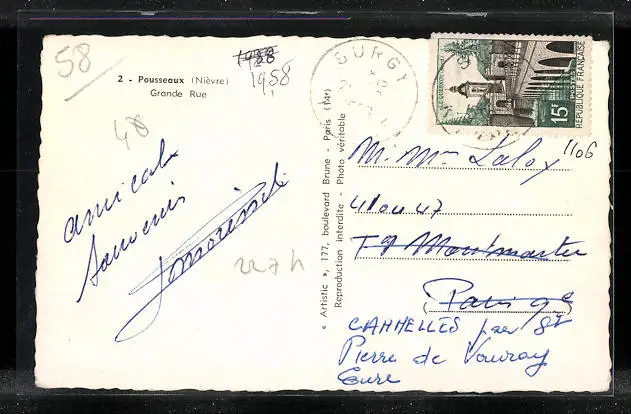 58
2 - Pousseaux (Nièvre)
Grande Rue
1958
48
amicale
souvenir
227 h
« Artistic », 177, boulevard Brune - Paris (14e)
Reproduction interdite - Photo véritable
SURGY
LE QUESNOY
15F
POSTES
REPUBLIQUE FRANÇAISE
1106
M. Mme Laloy
41 ou 47
Fg Montmartre
(Paris 9e
CAHHELLES par St
Pierre de Vauvray
Eure